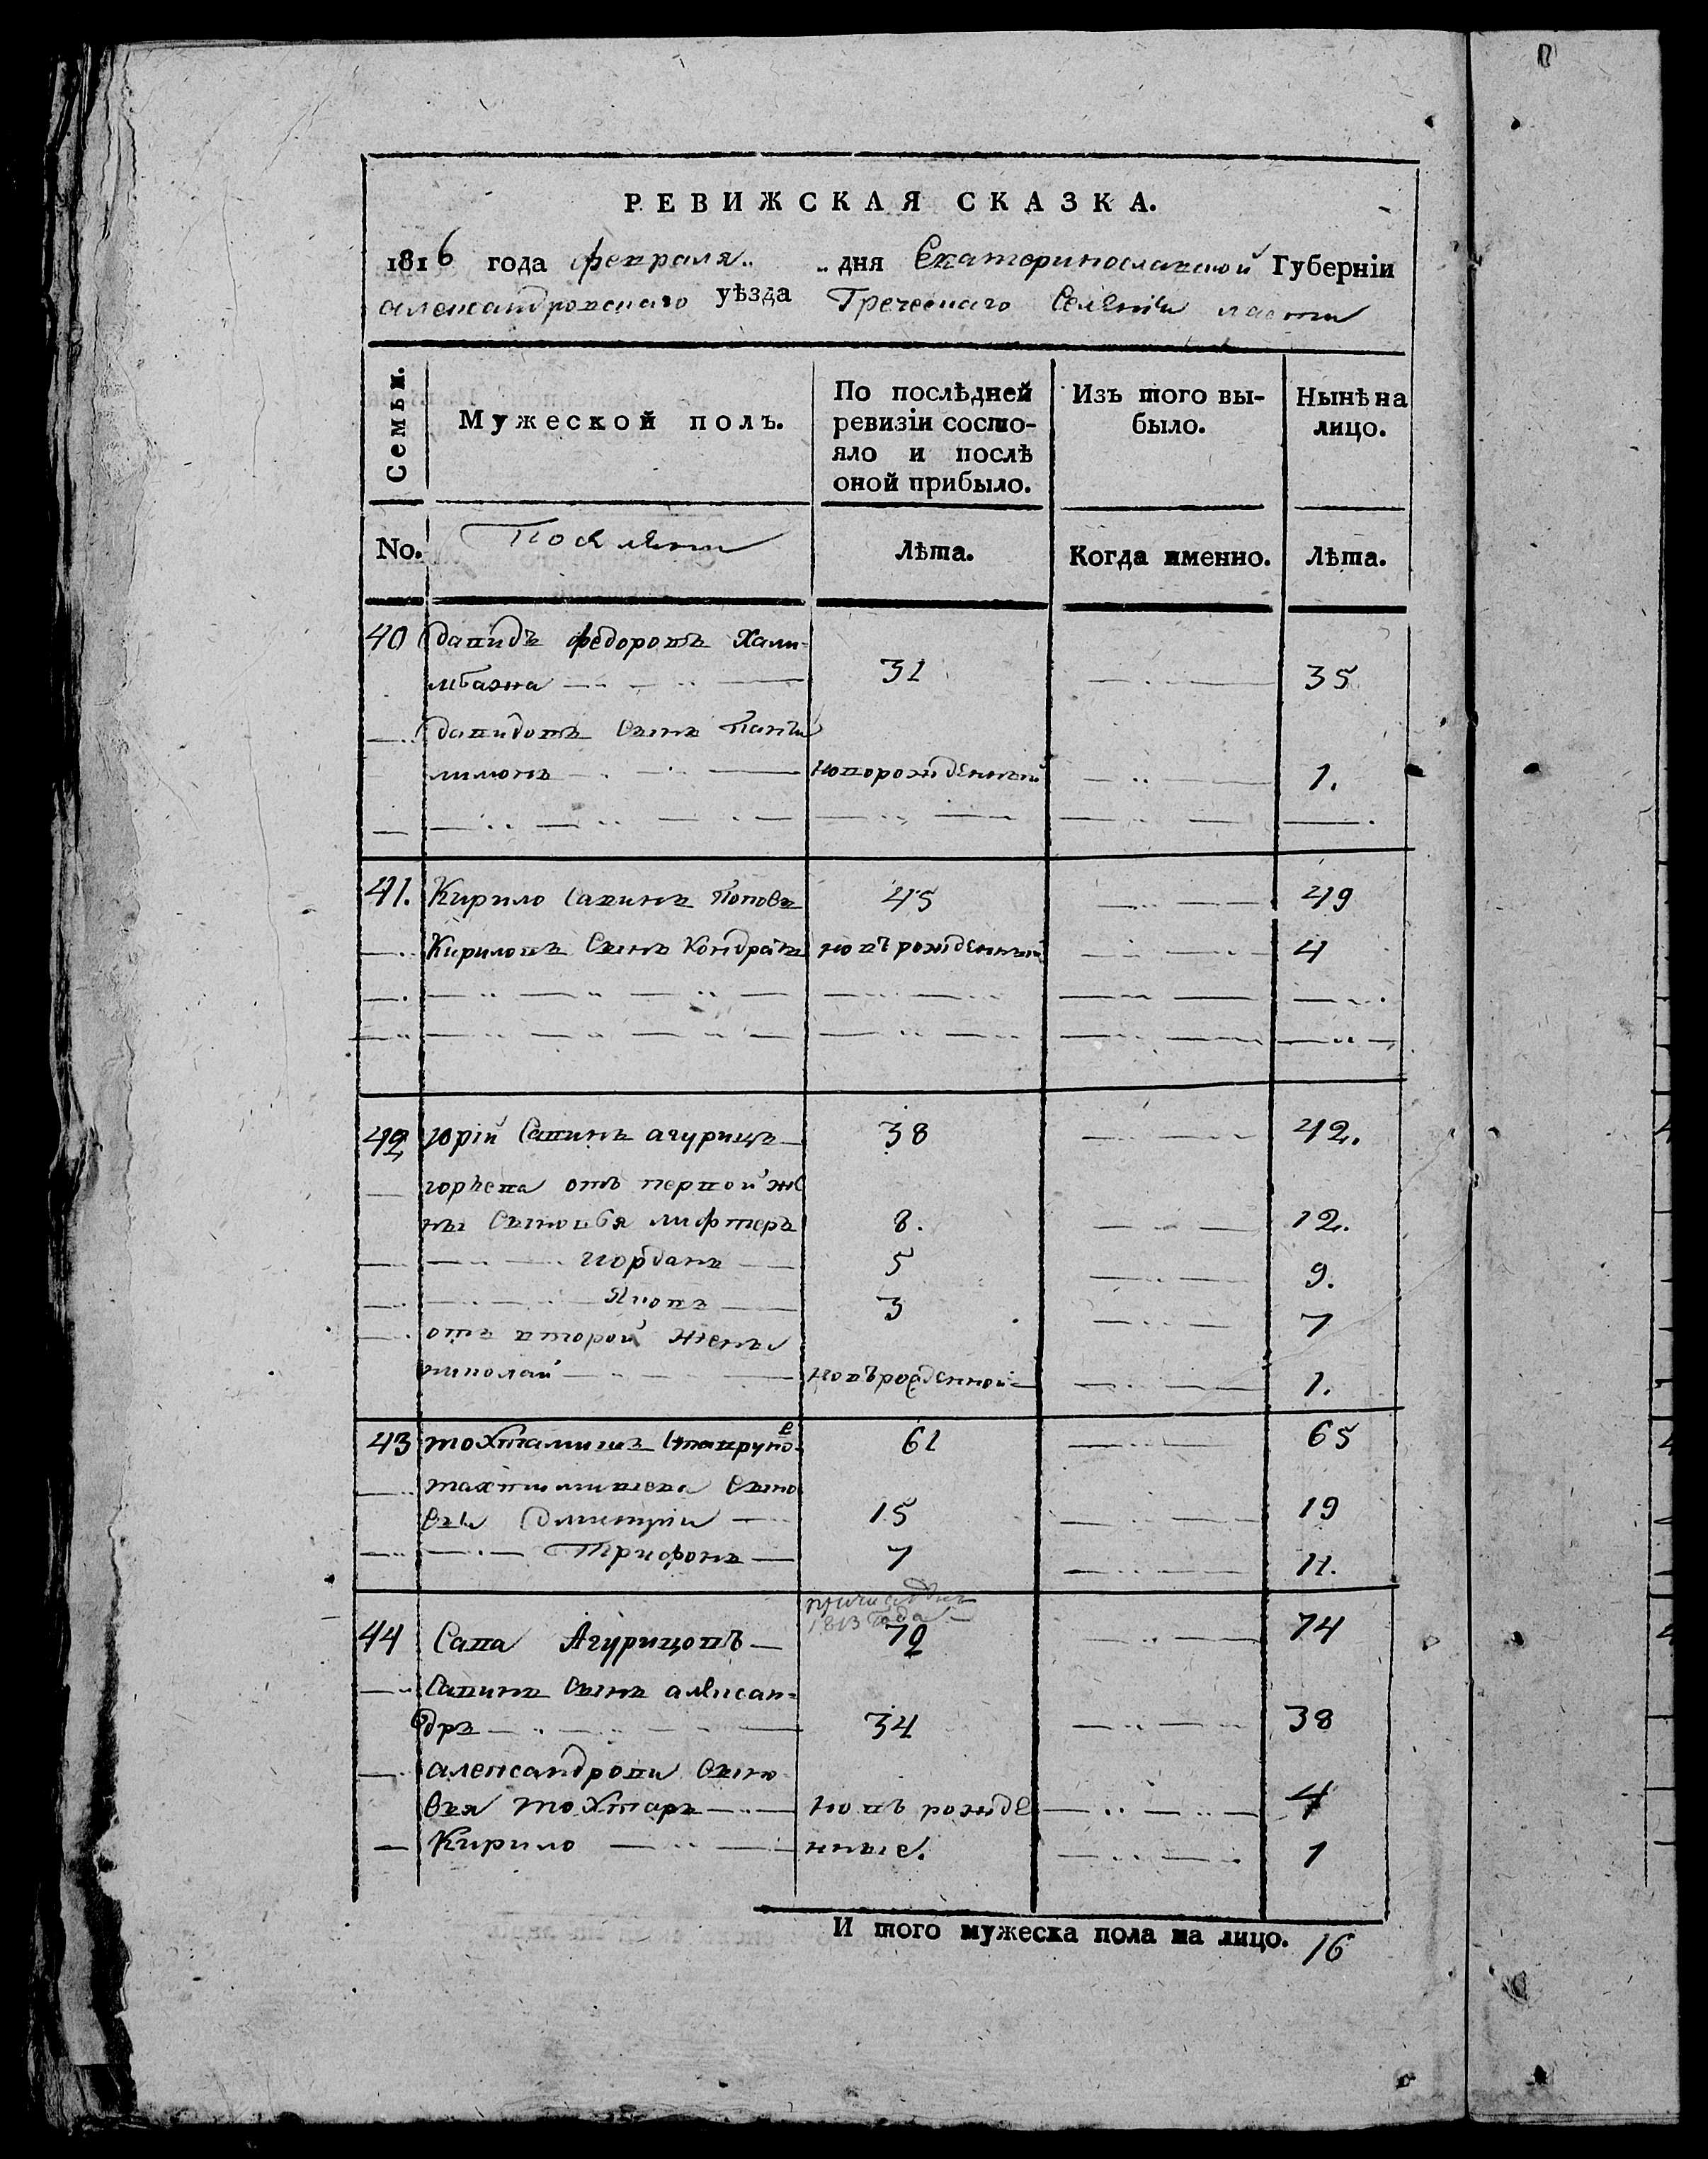 РЕВИЖСКАЯ СКАЗКА.
1816 года февраля „ „ дня Екатеринославской Губерніи
александровскаго уѣзда Греческаго Селенія ласпи
Семьи.
Мужеской полъ.
По послѣдней ревизіи состояло и послѣ оной прибыло.
Изъ того выбыло.
Нынѣ на лицо.
No.
Поселяни
Лѣта.
Когда именно.
Лѣта.
40 давидъ федоровъ Хали-
31 35
давидовъ Сынъ Панте
лимонъ новорожденный 1.
41. Кирило Савинъ Поповъ 45 49
Кириловъ Сынъ Кондратъ новърожденный 4
42 юрій Савинъ агурицъ 38 42.
юрьева отъ первой же
ны Сыновья лифтеръ 8. 12.
иорданъ 5 9.
Яковъ 3 7
отъ второй жены
николай новърожденной 1.
43 тохтамишъ 61 65
Сыно
вьи Дмитрій 15 19
Трифонъ 7 11.
1813 года
44 Сава Агурицовъ 70 74
Савинъ Сынъ алексан-
дръ 34 38
александрови Сыно
вья тохтаръ новъ рожде 4
Кирило нные. 1
И того мужеска пола на лицо. 16